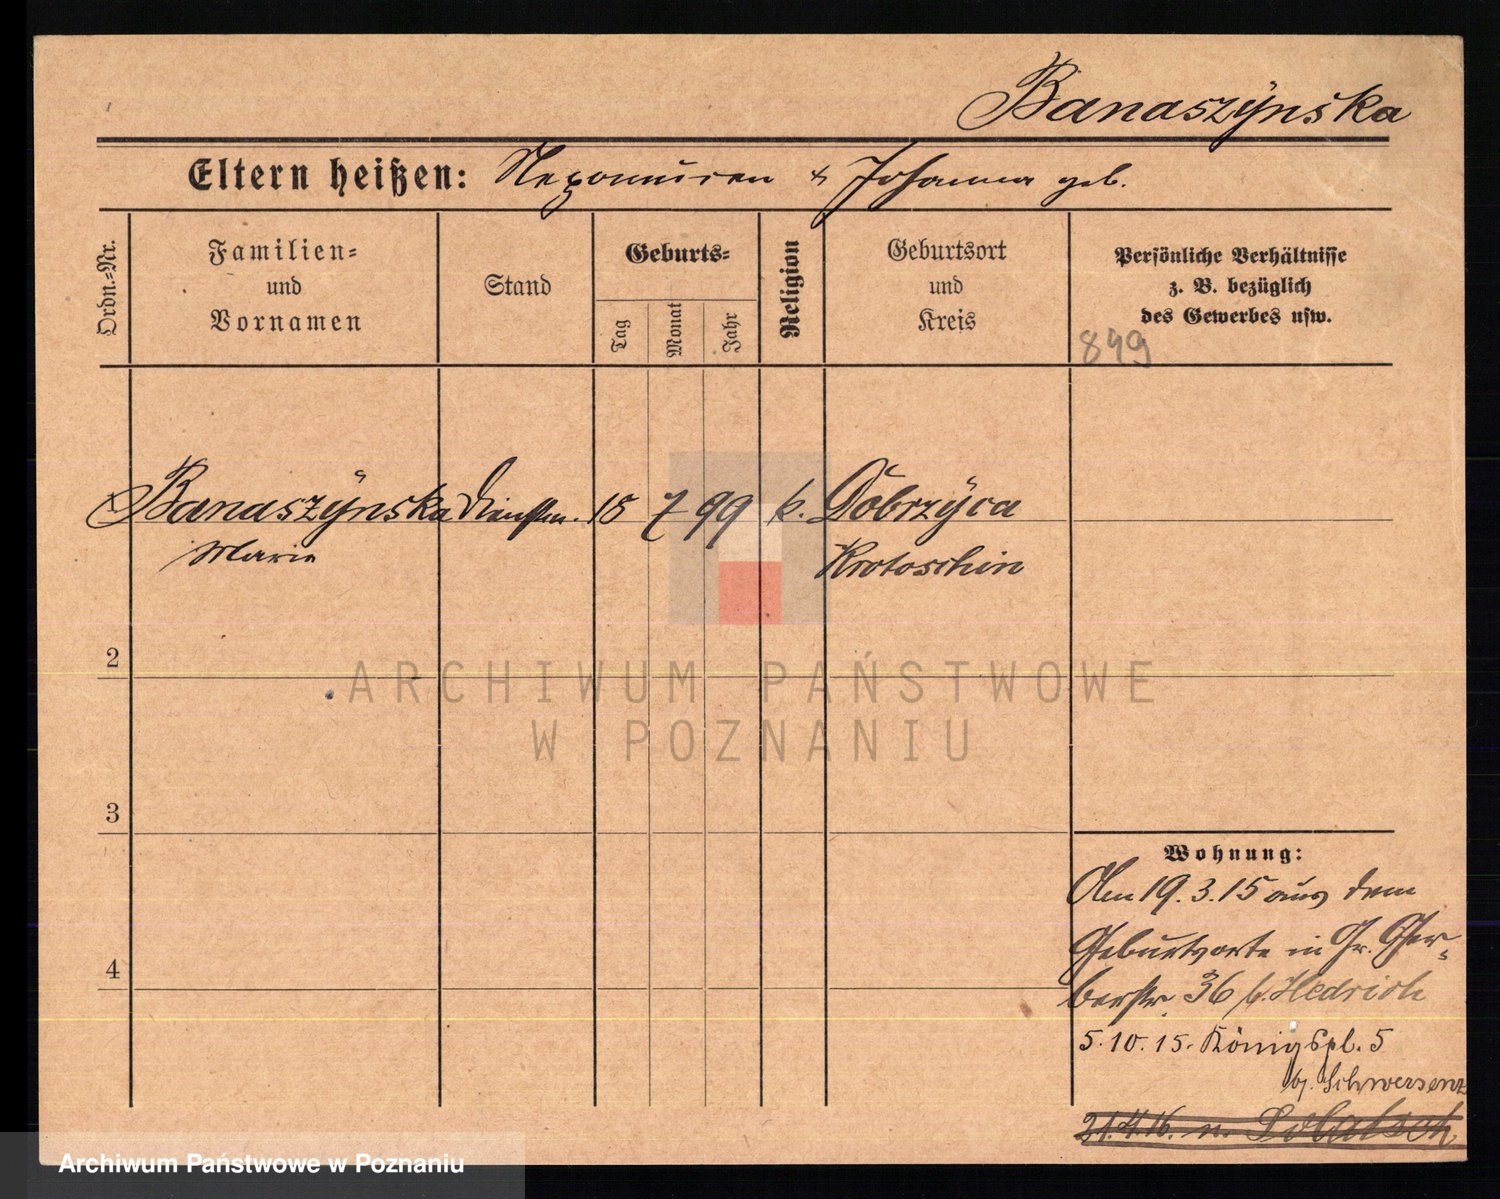 Banaszÿnska
Eltern heißen: Nepomucen & Johanna geb.
Ordn.-Nr.
Familien-
und
Vornamen
Stand
Geburts-
Tag
Monat
Jahr
Religion
Geburtsort
und
Kreis
Persönliche Verhältnisse
z. B. bezüglich
des Gewerbes usw.
849
Banaszÿnska Dienstm. 15 7 99 k. Dobrzÿca
Marie Krotoschin
2
ARCHIWUM PAŃSTWOWE
W POZNANIU
3
Wohnung:
Am 19.3.15 aus dem
Geburtsorte in Gr. Ger-
4
berstr. 36 b. Hedrich
5.10.15. Königspl. 5
b. Schwersenz
21.4.16. n.
Archiwum Państwowe w Poznaniu